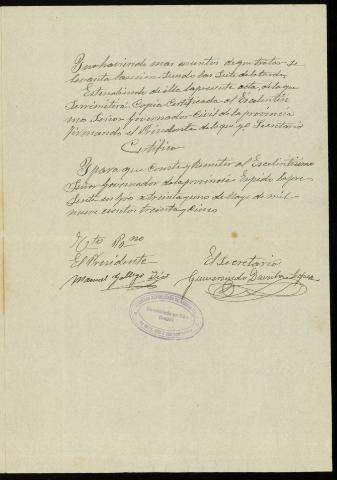 Y no habiendo mas asuntos de que tratar se
levanta la sesion siendo las siete de la tarde
Extendiendo de ella la presente acta, de la que
se remitirá Copia Certificada al Excelentisi
mo Señor Governador Civil de la provincia
firmando el Presidente de lo que yo Secretario
Certifico
Y para que Conste y Remitir al Excelentisimo
Señor Governador de la provincia Expido la pre
sente en a treinta y uno de Mayo de mil
nueve cientos treinta y cinco
Vto Bno
El Presidente
El Secretario
Manuel Gallego
Gumersindo